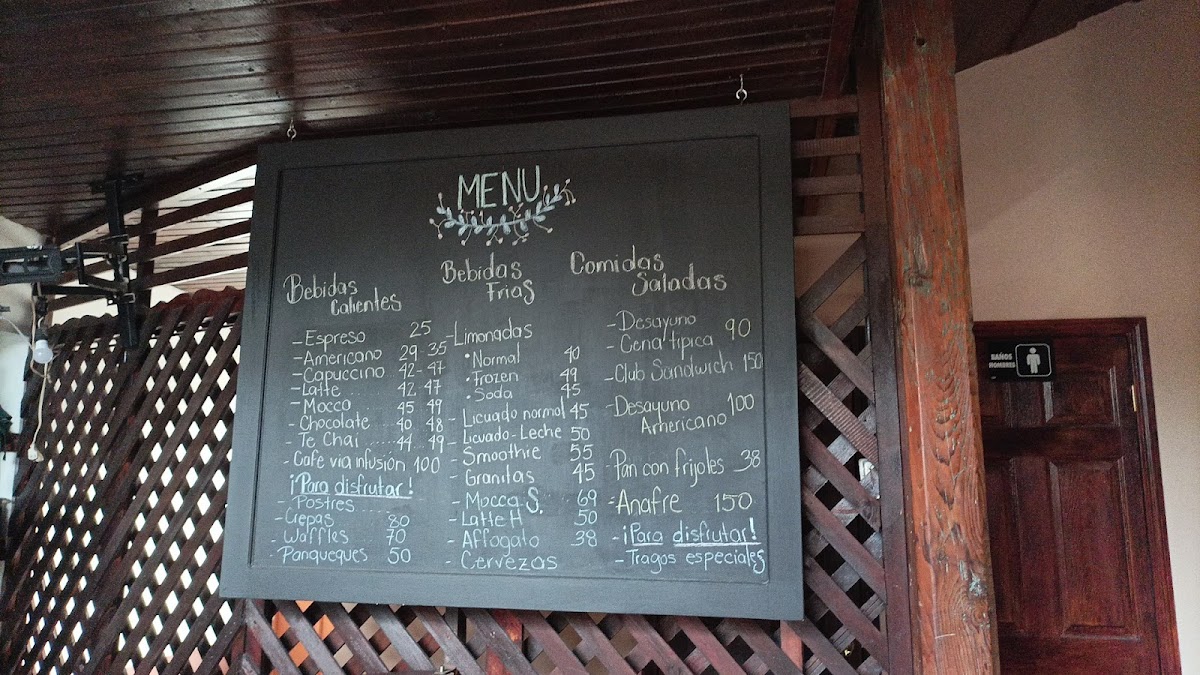 MENU
Bebidas
Calientes
-Espreso 25
-Americano 29-35
-Capuccino 42-47
-Latte 42-47
-Mocca 45 49
-Chocolate 40 48
-Te Chai ..... 44 49
-Café via infusión 100
¡Para disfrutar!
-Postres
-Crepas 80
-Waffles 70
Panqueques 50
Bebidas
Frias
-Limonadas
•Normal 40
•Frozen 49
•Soda 45
-Licuado normal 45
-Licuado-Leche 50
-Smoothie 55
-Granitas 45
-Mocca S. 69
-Latte H 50
-Affogato 38
-Cervezas
Comidas
Saladas
-Desayuno
-Cena tipica 90
-Club Sandwich 150
-Desayuno
Americano 100
-Pan con frijoles 38
-Anafre 150
-¡Para disfrutar!
-Tragos especiales
BAÑOS
HOMBRES